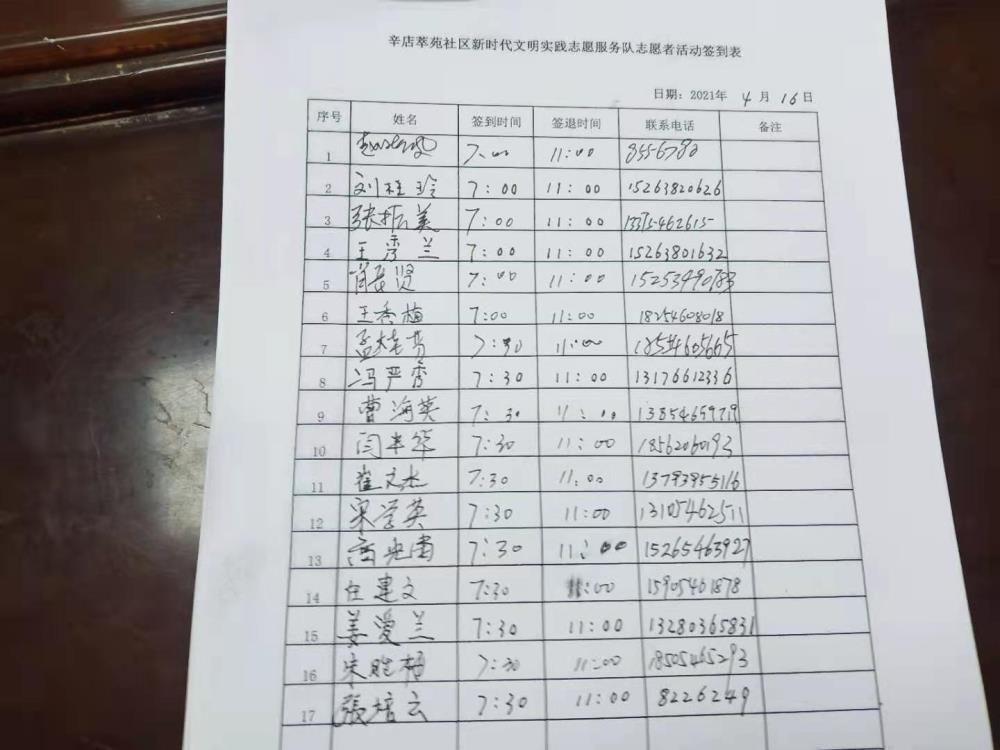 辛店萃苑社区新时代文明实践志愿服务队志愿者活动签到表
日期：2021年 4 月 16 日
序号 姓名 签到时间 签退时间 联系电话 备注
1 7:00 11:00 8556780
2 刘桂玲 7:00 11:00 15263820626
3 张振美 7:00 11:00 13375462615
4 王秀兰 7:00 11:00 15263801632
5 肖长贤 7:00 11:00 15253490783
6 王秀梅 7:00 11:00 18254608018
7 孟桂芳 7:30 11:00
8 冯严秀 7:30 11:00 13176612336
9 曹海英 7:30 11:00 13854659719
10 闫丰华 7:30 11:00 18562060193
11 崔文杰 7:30 11:00 13793955116
12 宋学英 7:30 11:00 13105462511
13 7:30 11:00 15265463927
14 任建文 7:30 11:00 15905461878
15 姜爱兰 7:30 11:00 13280365831
16 宋胜梅 7:30 11:00 18505465293
17 張培云 7:30 11:00 8226249